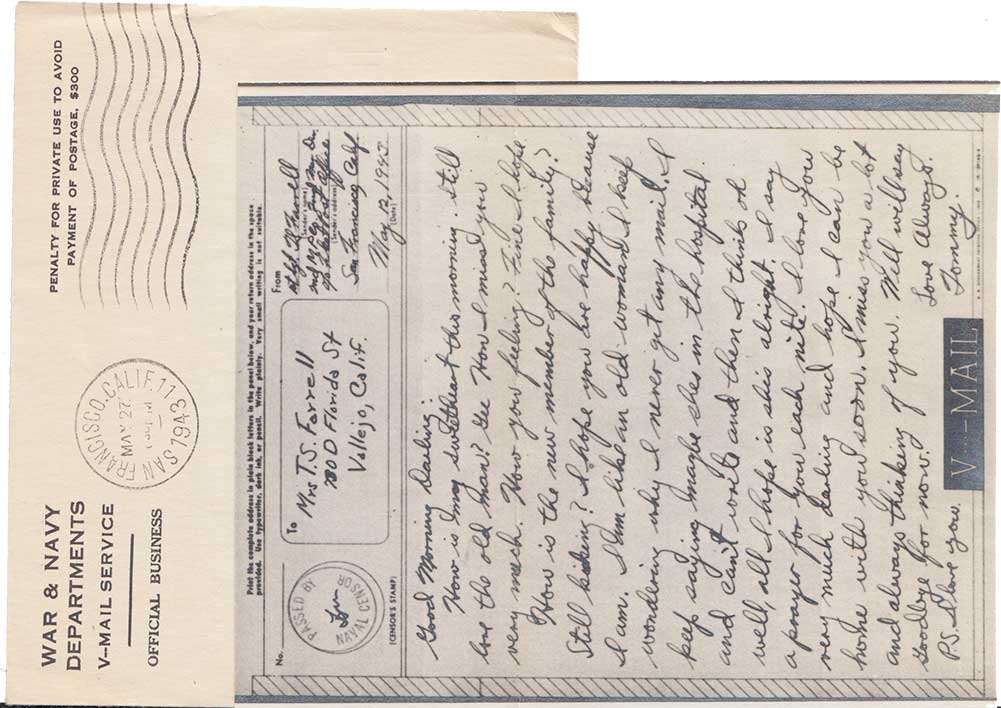 WAR & NAVY
DEPARTMENTS
V-MAIL SERVICE
OFFICIAL BUSINESS
SAN FRANCISCO, CALIF. 11
MAY 27
1943
PENALTY FOR PRIVATE USE TO AVOID
PAYMENT OF POSTAGE, $300
Print the complete address in plain block letters in the panel below, and your return address in the space
provided. Use typewriter, dark ink, or pencil. Write plainly. Very small writing is not suitable.
No.
PASSED BY
NAVAL CENSOR
(CENSOR'S STAMP)
To
Mrs T.S. Farrell
100 D Florida St
Vallejo, Calif.
From
Farrell
(Sender's name)
(Sender's address)
Post Office
San Francisco Calif
May 12, 1943
(Date)
Good Morning Darling:
How is my sweetheart this morning. Still
love the old man? Gee How I miss you
very much. How you feeling? Fine I hope
How is the new member of the family?
Still kicking? I hope you are happy because
I am. I am like an old woman. I keep
wondering why I never get any mail. I
keep saying maybe shes in the hospital
and can't write and then I think oh
well, all I hope is shis alright. I say
a prayer for you each nite. I love you
very much darling and hope I can be
home with you soon. I miss you a lot
and always thinking of you. Well will say
Goodby for now.
Love Always.
Tommy.
P.S. I love you.
V-MAIL